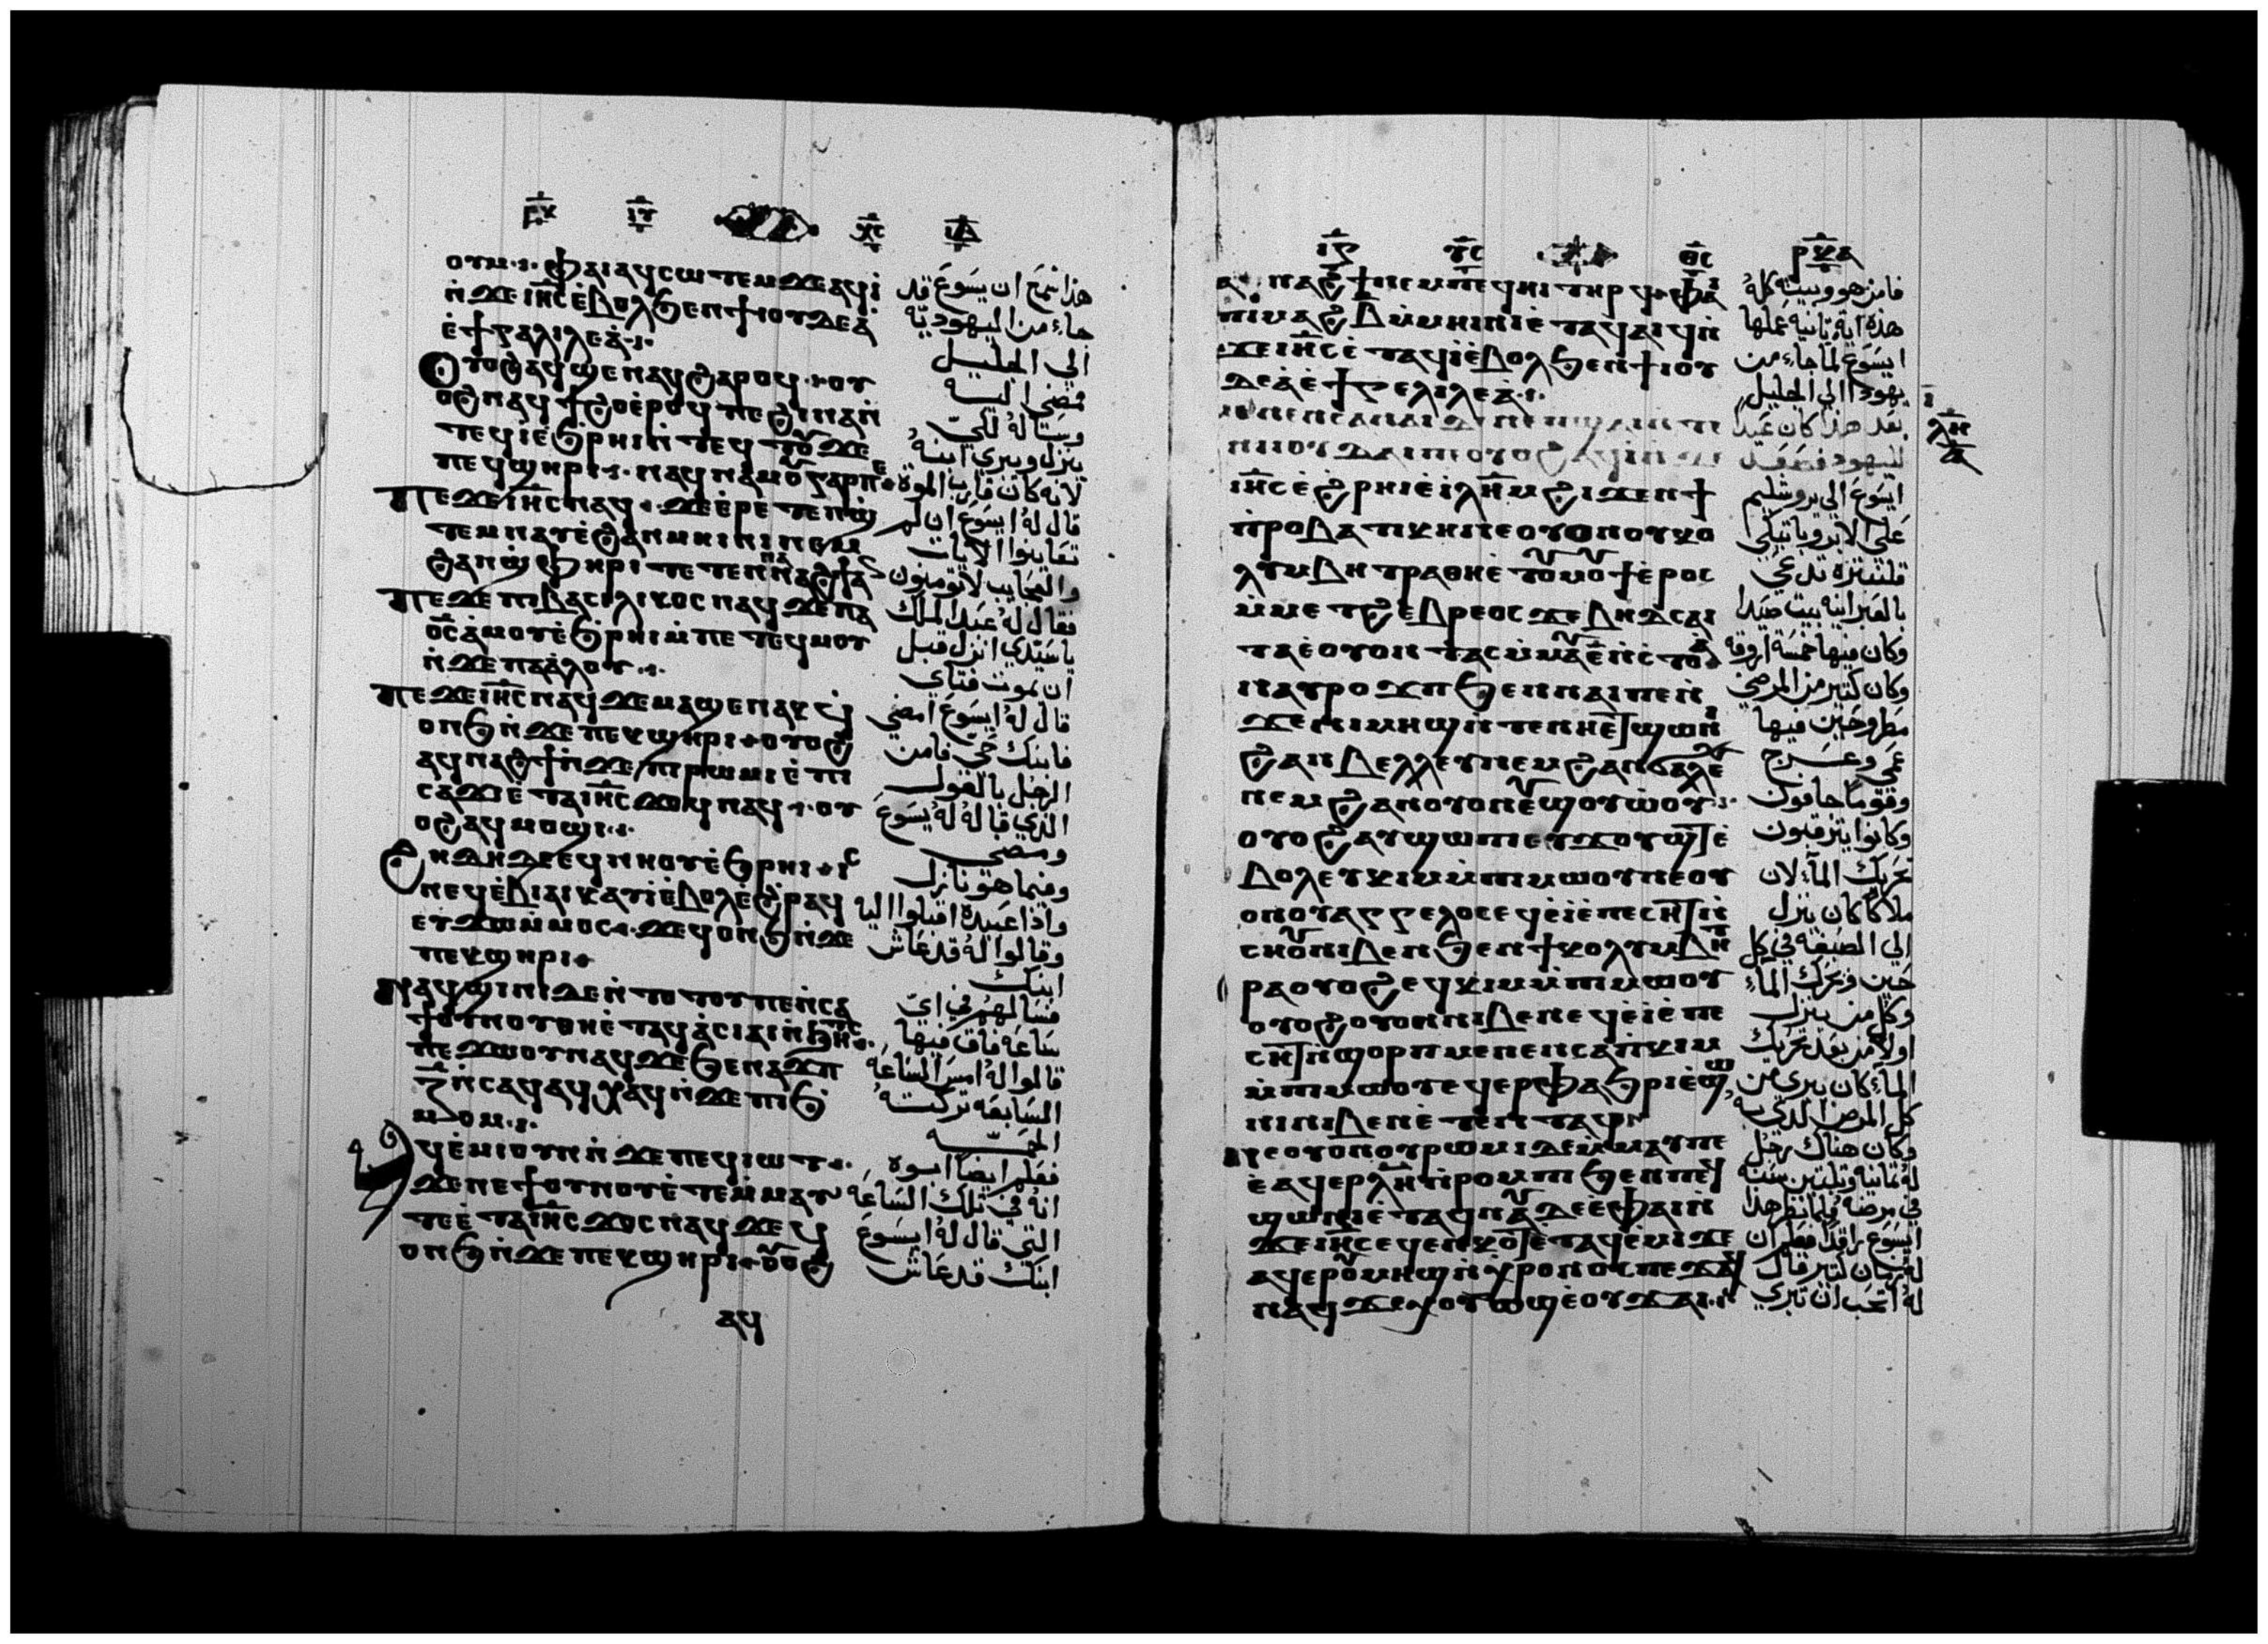 ⲣⲝ ⲓⲩ ⲭⲥ ⲓⲇ
ⲟⲩⲙ · ⲫⲁⲓⲁϥⲥⲱⲧⲉⲙϫⲉⲁϥⲓ̀
ⲛ̀ϫⲉⲓⲏ̅ⲥ̅ⲉ̀ⲃⲟⲗϧⲉⲛϯⲓⲟⲩⲇⲉⲁ̀
ⲉ̀ϯⲅⲁⲗⲓⲗⲉⲁ̀
ⲟⲩⲟϩⲁϥϣⲉⲛⲁϥϩⲁⲣⲟϥ · ⲟⲩ
ⲟϩⲛⲁϥϯϩⲟⲉ̀ⲣⲟϥⲡⲉϩⲓⲛⲁⲛ̀
ⲧⲉϥⲓ̀ⲉ̀ϧⲣⲏⲓⲛ̀ⲧⲉϥⲧⲟⲩϫⲉ
ⲡⲉϥϣⲏⲣⲓ · ⲛⲁϥⲛⲁⲙⲟⲩⲅⲁⲣⲡⲉ
ⲡⲉϫⲉⲓⲏ̅ⲥ̅ⲛⲁϥ · ϫⲉⲉ̀ⲣⲉⲧⲉⲛϣ̀
ⲧⲉⲙⲛⲁⲩⲉ̀ϩⲁⲛⲙⲏⲓⲛⲓⲛⲉⲙ
ϩⲁⲛϣ̀ⲫⲏⲣⲓⲧⲉⲧⲉⲛⲛⲁⲛⲁϩϯⲁⲛ
ⲡⲉϫⲉⲡⲓⲃⲁⲥⲓⲗⲓⲕⲟⲥⲛⲁϥϫⲉⲡⲁ
ⲟ̅ⲥ̅ⲁ̀ⲙⲟⲩⲉ̀ϧⲣⲏⲓⲙ̀ⲡⲉⲧⲉϥⲙⲟⲩ
ⲛ̀ϫⲉⲡⲁⲁ̀ⲗⲟⲩ
ⲡⲉϫⲉⲓⲏ̅ⲥ̅ⲛⲁϥϫⲉⲙⲁϣⲉⲛⲁⲕϥ
ⲟⲛϧⲛ̀ϫⲉⲡⲉⲕϣⲏⲣⲓ ⲟⲩⲟϩ
ⲁϥⲛⲁϩϯⲛ̀ϫⲉⲡⲓⲣⲱⲙⲓⲉ̀ⲡⲓ
ⲥⲁϫⲓⲉ̀ⲧⲁⲓⲏ̅ⲥ̅ϫⲟϥⲛⲁϥ · ⲟⲩ
ⲟϩⲁϥⲙⲟϣⲓ
ϩⲏⲇⲏⲇⲉⲉϥⲛⲏⲟⲩⲉ̀ϧⲣⲏⲓ ⲓⲥ
ⲛⲉϥⲉ̀ⲃⲓⲁⲓⲕⲁⲩⲓ̀ⲉ̀ⲃⲟⲗⲉ̀ϩⲣⲁϥ
ⲉⲩϫⲱⲙ̀ⲙⲟⲥ · ϫⲉϥⲟⲛϧⲛ̀ϫⲉ
ⲡⲉⲕϣⲏⲣⲓ
ⲛⲁϥϣⲓⲛⲓϫⲉⲛ̀ⲧⲟⲧⲟⲩⲡⲉⲛ̀ⲥⲁ
ϯⲟⲩⲛⲟⲩⲑⲏⲉ̀ⲧⲁϥⲁ̀ⲥⲓⲁⲓⲛ̀ϧⲏⲧⲥ
ⲡⲉϫⲱⲟⲩⲛⲁϥϫⲉϧⲉⲛⲁϫⲡ
ⲍ̅ⲛ̀ⲥⲁϥⲁϥⲭⲁϥⲛ̀ϫⲉⲡⲓϧ̀
ⲙⲟⲙ
ⲁϥⲉ̀ⲙⲓⲟⲩⲛⲛ̀ϫⲉⲡⲉϥⲓⲱⲧ
ϫⲉⲛⲉϯⲟⲩⲛⲟⲩⲉ̀ⲧⲉⲙ̀ⲙⲁⲩ
ⲧⲉⲉ̀ⲧⲁⲓⲏ̅ⲥ̅ϫⲟⲥⲛⲁϥϫⲉϥ
ⲟⲛϧⲛ̀ϫⲉⲡⲉⲕϣⲏⲣⲓ ⲟⲩⲟϩ
ⲁϥ
هذا سمع ان يسوع قد
جاء من اليهوديه
الي الجليل
فمضي اليه
وسأله لكي
ينزل ويبري ابنه
لانه كان قارب الموت
قال له ايسوع ان لم
تعاينوا الايات
والعجايب لا تومنون
فقال له عبد الملك
ياسيدي انزل قبل
ان يموت فتاي
قال له ايسوع امضي
فابنك حي فامن
الرجل بالقول
الذي قاله له يسوع
ومضي
وفيما هو نازل
واذا عبيده اقبلوا اليه
وقالوا له قد عاش
ابنك
فسالهم في اي
ساعة فاق فيها
قالوا له امس الساعه
السابعه تركته
الحمي
فعلم ايضا ابوه
انه في تلك الساعه
التي قال له ايسوع
ابنك قد عاش
ⲓⲋ ⲩⲥ ⲑⲥ ⲣⲝⲁ
ⲁϥⲛⲁϩϯⲛⲉⲙⲡⲉϥⲏⲓⲧⲏⲣϥ ⲫⲁⲓ
ⲡⲓⲙⲁϩⲃⲙ̀ⲙⲏⲓⲛⲓⲉ̀ⲧⲁϥⲁⲓϥⲛ̀
ϫⲉⲓⲏ̅ⲥ̅ⲉ̀ⲧⲁϥⲓ̀ⲉ̀ⲃⲟⲗϧⲉⲛϯⲓⲟⲩ
ⲇⲉⲁ̀ⲉ̀ϯⲅⲉⲗⲓⲗⲉⲁ̀
ⲙⲉⲛⲉⲛⲥⲁⲛⲁⲓ
ⲛⲓⲓⲟⲩⲇⲁⲓⲟⲩⲟϩⲁϥⲓ̀ⲛ̀ϫⲉ
ⲓⲏ̅ⲥ̅ⲉ̀ϩⲣⲏⲓⲉ̀ⲓⲗⲏ̅ⲙ̅ϩⲓϫⲉⲛϯ
ⲡⲣⲟⲃⲁⲧⲓⲕⲏⲛⲉⲟⲩⲟⲛⲟⲩⲕⲟ
ⲗⲩⲙⲃⲏⲧⲣⲁⲑⲏⲉ̀ⲧⲟⲩⲙⲟⲩϯⲉ̀ⲣⲟⲥ
ⲙ̀ⲙⲉⲧϩⲉⲃⲣⲉⲟⲥϫⲉⲃⲏⲇⲥⲁⲓ
ⲇⲁⲉ̀ⲟⲩⲟⲛⲧⲁⲥⲙ̀ⲙⲁⲩⲉ̀ⲛ̀ⲥⲧⲟⲁ̀
ⲛⲁⲩⲣⲟϫⲡϧⲉⲛⲛⲁⲓⲡⲉⲛ̀
ϫⲉⲛⲓⲙⲏϣⲛ̀ⲧⲉⲛⲏⲉⲧϣⲱⲛⲓ
ϩⲁⲛⲃⲉⲗⲗⲉⲩⲛⲉⲙϩⲁⲛϭⲁⲗⲉⲩ
ⲛⲉⲙϩⲁⲛⲟⲩⲟⲛⲉⲩϣⲟⲩⲱ̀ⲟⲩ
ⲟⲩⲟϩⲁⲩϣⲱⲡⲉⲩϫⲟⲩϣⲧⲉ̀
ⲃⲟⲗⲉⲩⲕⲓⲙⲙ̀ⲡⲓⲙⲱⲟⲩⲛⲉⲟⲩ
ⲟⲛⲟⲩⲁⲅⲅⲉⲗⲟⲥⲉϥⲉ̀ⲓ̀ⲉ̀ⲡⲉⲥⲏⲧⲛ̀
ⲥⲏⲟⲩⲛⲓⲃⲉⲛϧⲉⲛϯⲕⲟⲗⲩⲙⲃⲏⲧ
ⲣⲁⲟⲩⲟϩⲉϥⲕⲓⲙⲙ̀ⲡⲓⲙⲱⲟⲩ
ⲟⲩⲟϩⲟⲩⲟⲛⲛⲓⲃⲉⲛⲉϥⲉ̀ⲓ̀ⲉ̀ⲡⲉ
ⲥⲏⲧⲛ̀ϣⲟⲣⲡⲙⲉⲛⲉⲛⲥⲁⲡⲕⲓⲙ
ⲙ̀ⲡⲓⲙⲱⲟⲩⲉϥⲉⲣⲫⲁϧⲣⲓⲉ̀ϣⲱ
ⲛⲓⲛⲓⲃⲉⲛⲉ̀ⲧⲉⲛⲧⲁϥ
ⲛⲉⲟⲩⲟⲛⲟⲩⲣⲱⲙⲓⲇⲉⲙ̀ⲙⲁⲩⲡⲉ
ⲉ̀ⲁϥⲉⲣⲗ̅ⲏ̅ⲛ̀ⲣⲟⲙⲡⲓϧⲉⲛⲡⲉϥ
ϣⲱⲛⲓⲉ̀ⲧⲁϥⲛⲁⲩⲇⲉⲉ̀ⲫⲁⲓⲛ̀
ϫⲉⲓⲏ̅ⲥ̅ⲉϥⲉⲛⲕⲟⲧⲉ̀ⲧⲁϥⲉ̀ⲙⲓϫⲉ
ⲁϥⲉⲣⲟⲩⲙⲏϣⲛ̀ⲭⲣⲟⲛⲟⲥⲡⲉϫⲁϥ
ⲛⲁϥϫⲉⲭⲟⲩⲱϣⲉ̀ⲟⲩϫⲁⲓ
فامن هو وبيته كله
هذه اية ثانيه عملها
ايسوع لما جاء من
يهودا الي الجليل
بعد هذا كان عيد
لليهود فصعد
ايسوع الي يروشليم
علي الابروباتيكي
تدعي
بالعبرانيه بيت صيدا
وكان فيها خمسة اروقه
وكان كثير من المرضي
مطروحين فيها
عمي وعرج
وقوما جافون
وكانوا يترقبون
تحريك الماء لان
ملاكا كان ينزل
الي الصبغه في كل
حين وتحرك الماء
وكل من ينزل
اولا من بعد تحريك
الماء كان يبري من
كل المرض الذي به
وكان هناك رجل
له ثمانيه وثلثين سنه
في مرضه فلما نظر هذا
ايسوع راقد فعلم ان
له زمان كثير قال
له اتحب ان تبري
ⲗⲏ
ⲁ